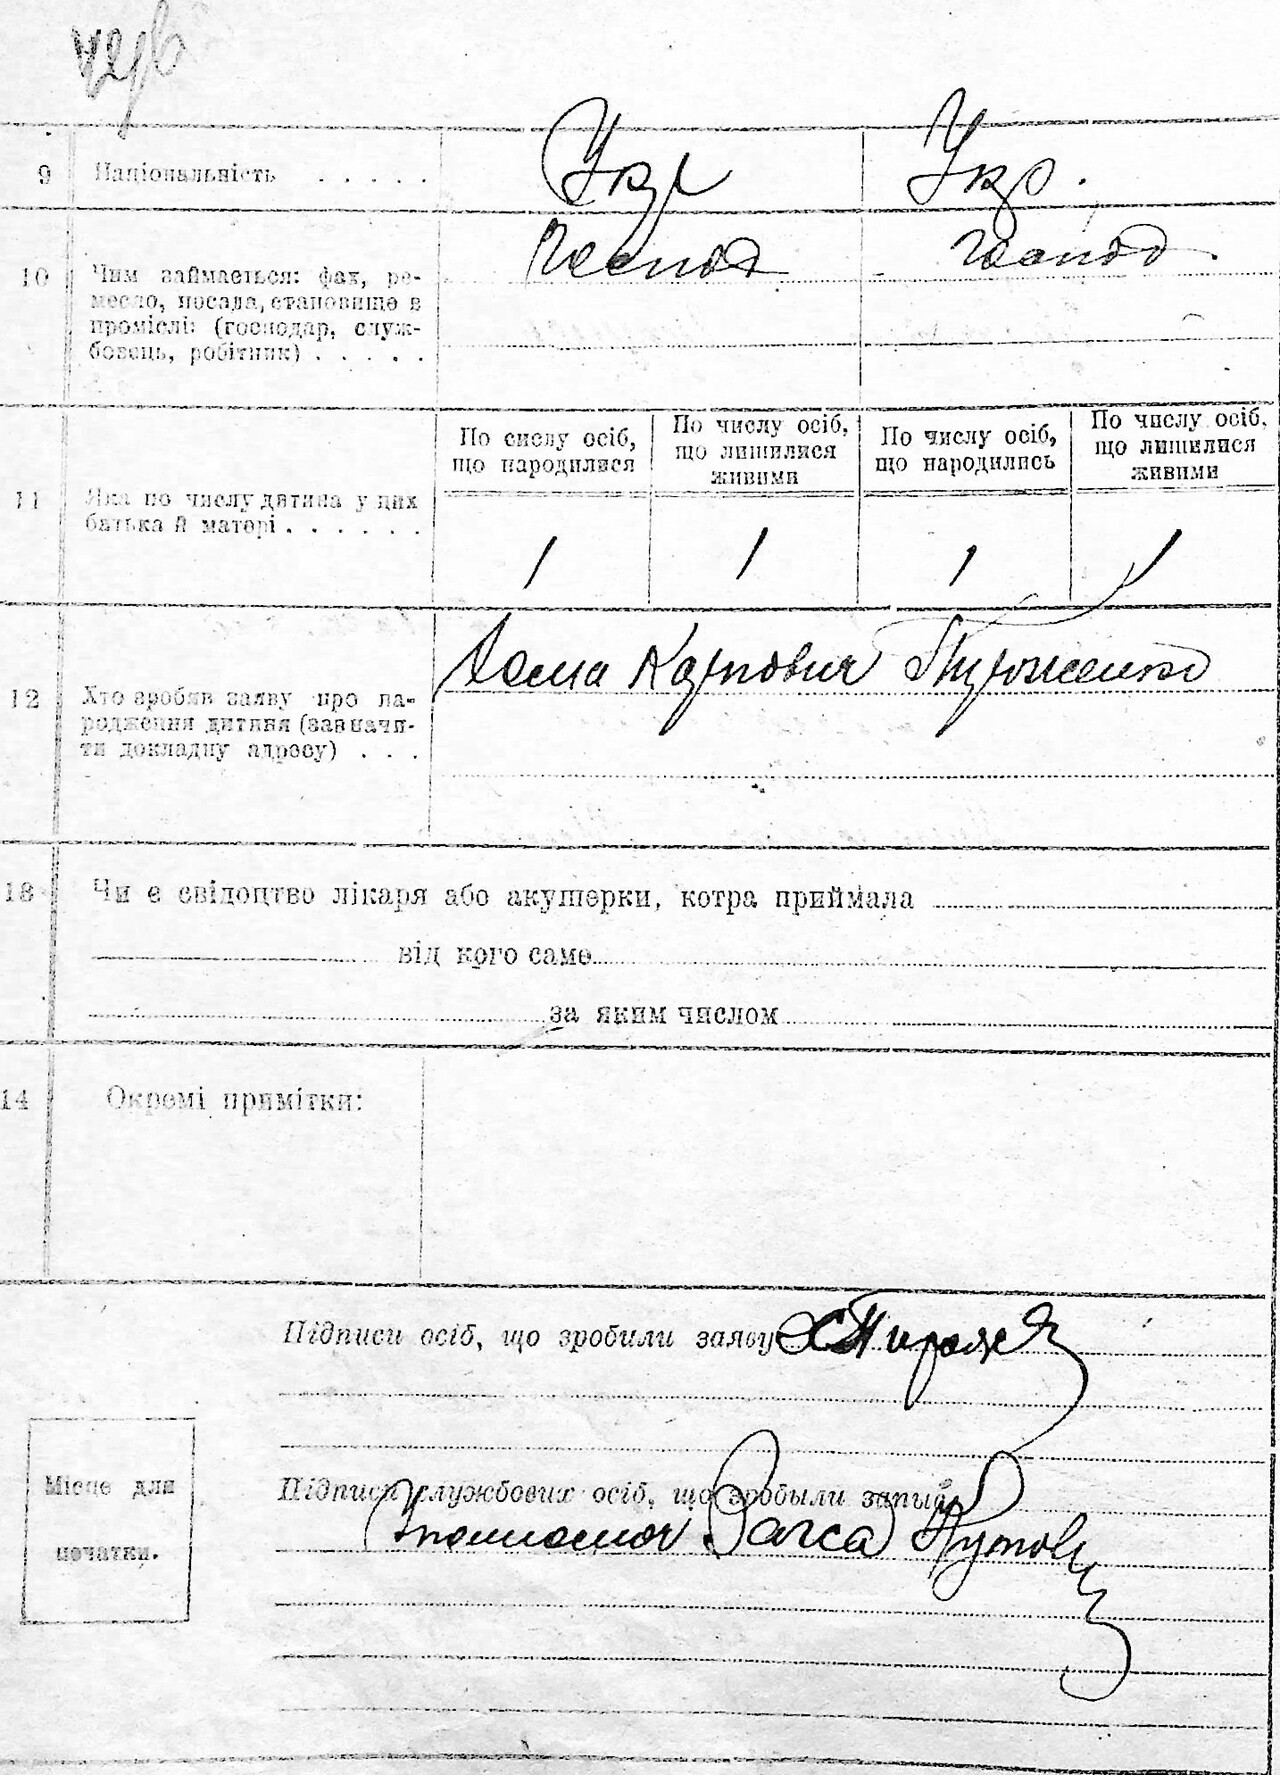 9 Національність . . . . . Укр Укр.
10 Чим займається: фах, ре-
месло, посада, становище в
промислі: (господар, служ-
бовець, робітник) . . . . .
Господ Господ.
По числу осіб,
що народилися
По числу осіб,
що лишилися
живими
По числу осіб,
що народились
По числу осіб,
що лишилися
живими
11 Яка по числу дитина у цих
батька й матері . . . . . .
1 1 1 1
12 Хто зробив заяву про на-
родження дитини (зазначи-
ти докладну адресу) . . .
Хома Карпович
13 Чи є свідоцтво лікаря або акушерки, котра приймала
від кого саме
за яким числом
14 Окремі примітки:
Підписи осіб, що зробили заяву
Місце для
печатки.
Підписи службових осіб, що зробыли запыс
Уполномоч Загса